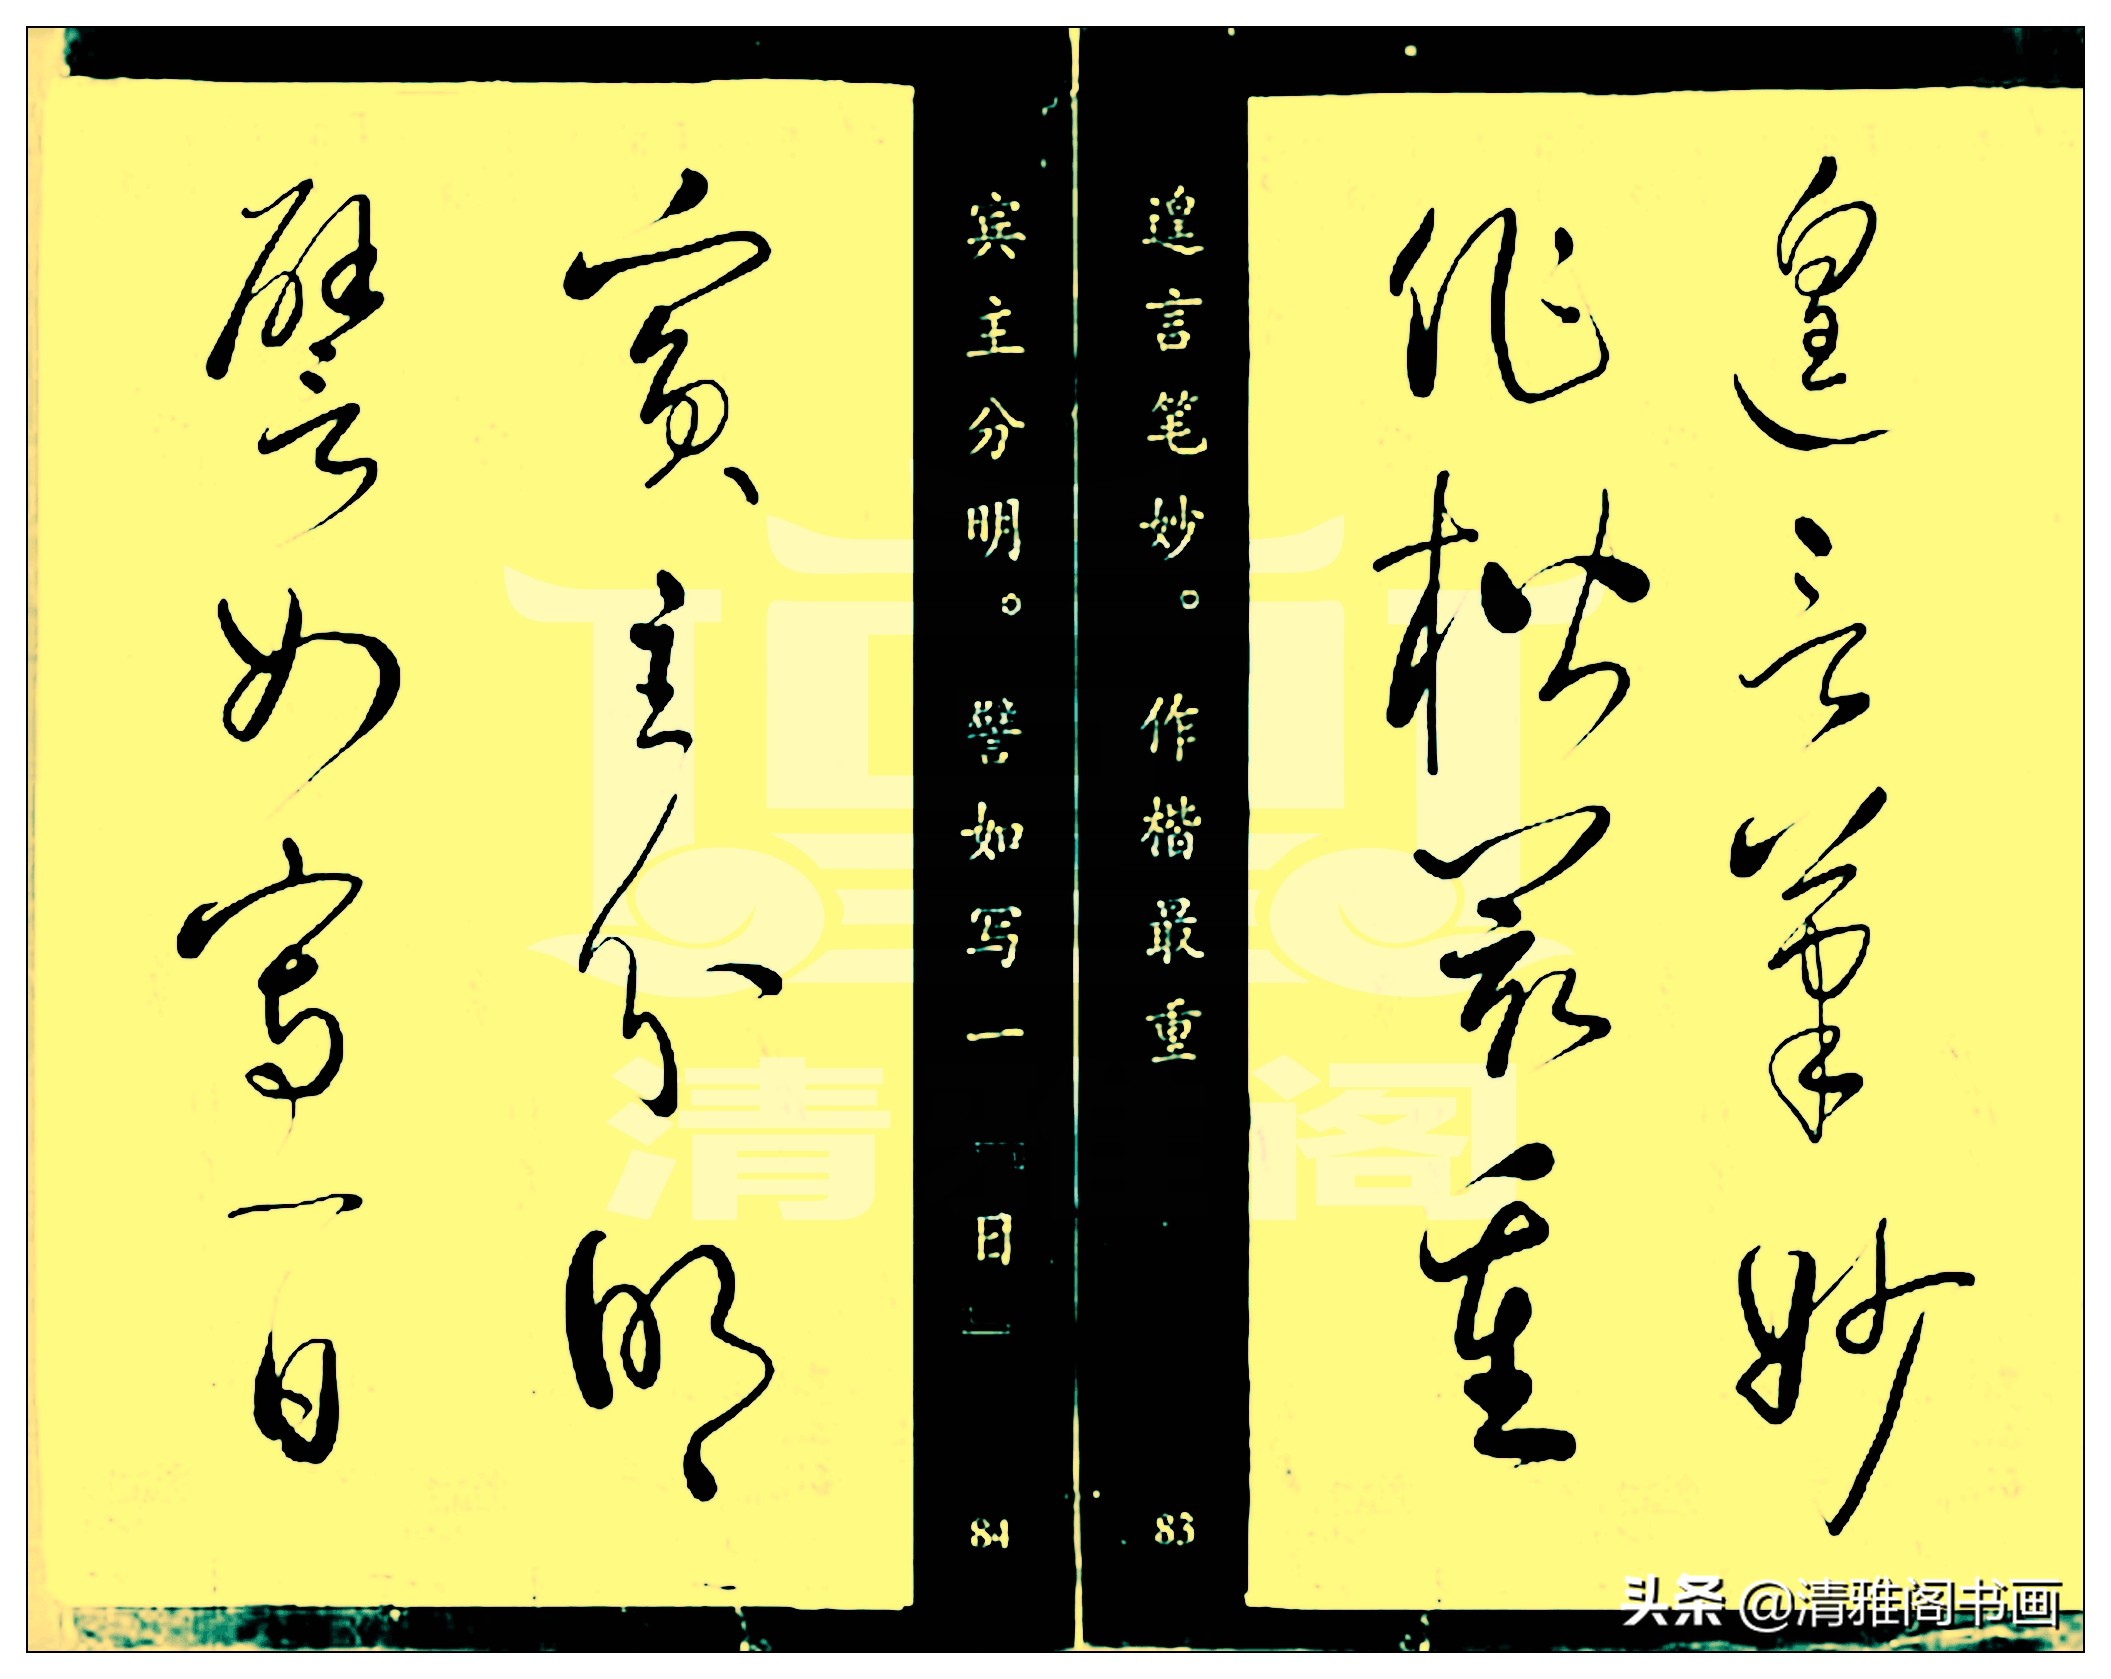 遑言筆妙
作楷最重
遑言笔妙。作楷最重
83
宾主分明。譬如写一「目」
84
賓主分明
譬如寫一目
清 阁
头条 @清雅阁书画